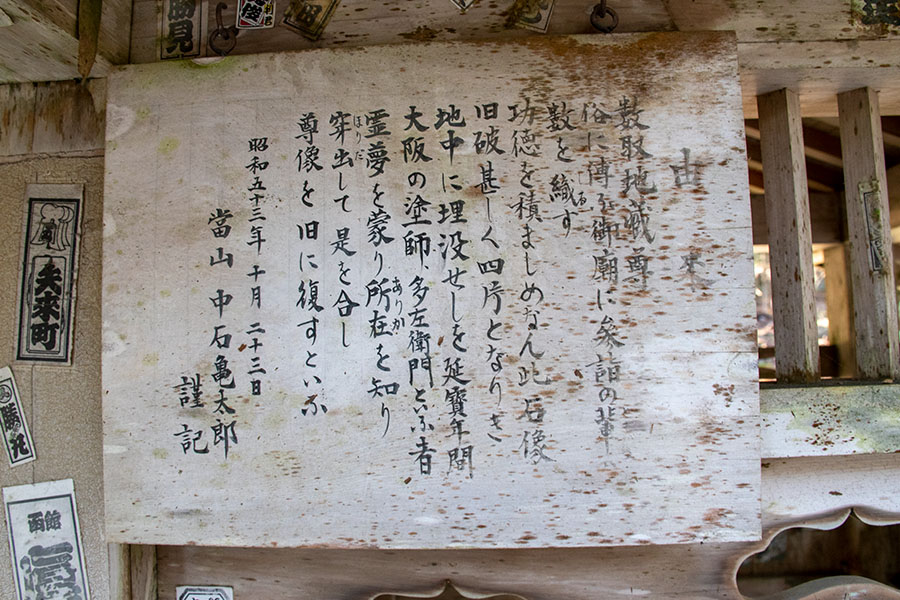 由来
数取地蔵尊
俗に傳ふ御廟に参詣の輩
数を織す
功徳を積ましめなん此石像
旧破甚しく四片となりき
地中に埋没せしを延寶年間
大阪の塗師、多左衛門といふ者
霊夢を蒙り所在を知り
ありか
穿出して是を合し
ほりだ
尊像を旧に復すといふ
昭和五十三年十月二十三日
當山中石亀太郎
謹記
勝見
矢来町
勝丸
函館